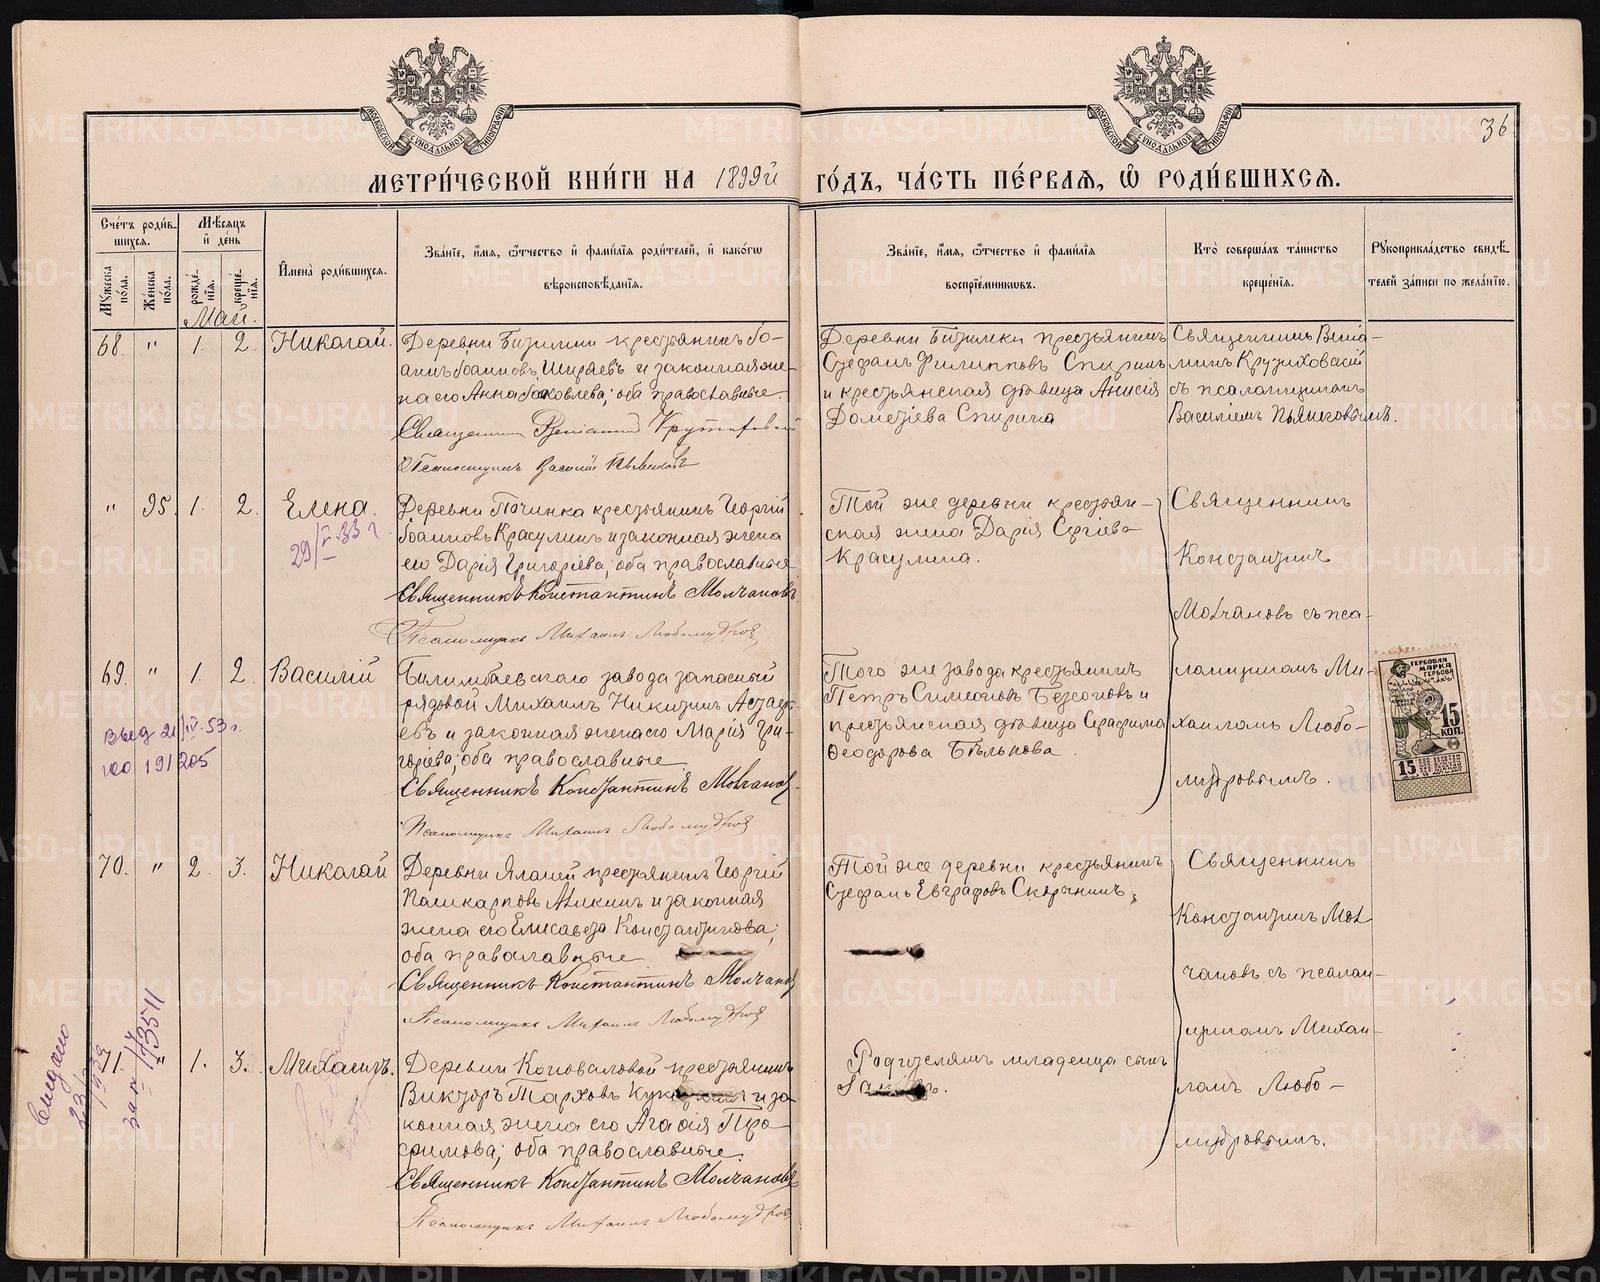 МОСКОВСКОЙ СѴНОДАЛЬНОЙ ТИПОГРАФІИ
МОСКОВСКОЙ СѴНОДАЛЬНОЙ ТИПОГРАФІИ
36.
МЕТРИ́ЧЕСКОЙ КНИ́ГИ НА 1899й ГО́ДЪ, ЧА́СТЬ ПЕ́РВАѦ, Ѡ҆ РОДИ́ВШИХСѦ.
Сче́тъ роди́в-
шихсѧ.
Мꙋжеска по́ла.
Же́нска по́ла.
Мѣ́сѧцъ
и҆ де́нь
рожде́-
нїѧ.
креще́-
нїѧ.
И҆мена̀ роди́вшихсѧ.
Зва́нїе, и҆́мѧ, ѻ҆́тчество и҆ фами́лїѧ роди́телей, и҆ како́гѡ
вѣроисповѣ́данїѧ.
Зва́нїе, и҆́мѧ, ѻ҆́тчество и҆ фами́лїѧ
воспрїе́мникѡвъ.
Кто̀ соверша́лъ та́инство
креще́нїѧ.
Рꙋкоприкла́дство свидѣ́-
телей за́писи по жела́нїю.
Май.
68. " 1. 2. Николай.
Деревни Битимки крестьянинъ Іо-
аннъ Іоанновъ Ширяевъ и законная же-
на его Анна Іаковлева; оба православные.
Священникъ Веніаминъ
Псаломщикъ Василій Пьянковъ
Деревни Битимки крестьянинъ
Стефанъ Филипповъ Спиринъ
и крестьянская дѣвица Анисія
Дометіева Спирина
Священникъ Венiа-
минъ
съ псаломщикомъ
Василіемъ Пьянковымъ.
" 95. 1. 2. Елена.
29/V 33 г.
Деревни Починка крестьянинъ Георгій
Іоанновъ Красулинъ и законная жена
его Дарія Григоріева; оба православные
Священникъ Константинъ Молчановъ.
Псаломщикъ Михаилъ Любомудровъ
Той же деревни крестьян-
ская жена Дарія Сергіева
Красулина.
Священникъ
Константинъ
Молчановъ съ пса-
ломщикомъ Ми-
хаиломъ Любо-
мудровымъ.
69. " 1. 2. Василій
Выд 21/IV. 53 г.
191205
Билимбаевскаго завода запасный
рядовой Михаилъ Никитинъ Астафь-
евъ и законная жена его Марія Гри-
горіева; оба православные
Священникъ Константинъ Молчановъ.
Псаломщикъ Михаилъ Любомудровъ
Того же завода крестьянинъ
Петръ Симеоновъ Безсоновъ и
крестьянская дѣвица Серафима
Ѳеодорова Бѣлькова.
ГЕРБОВАЯ
МАРКА
15
КОП.
15
70. " 2. 3. Николай
Деревни Крестьянинъ Георгій
законная
жена его Елисавета Константинова;
оба православные
Священникъ Константинъ Молчановъ
Псаломщикъ Михаилъ Любомудровъ
Той же деревни крестьянинъ
Стефанъ Евграфовъ Скорынинъ;
Священникъ
Константинъ Мол-
чановъ съ псалом-
щикомъ Михаи-
ломъ Любо-
мудровымъ.
71. " 1. 3. Михаилъ.
Деревни Коноваловой крестьянинъ
Викторъ Тарховъ и за-
конная жена его Агафія Тро-
фимова; оба православные.
Священникъ Константинъ Молчановъ
Псаломщикъ Михаилъ Любомудровъ
Родителямъ младенца сынъ
METRIKI.GASO-URAL.RU